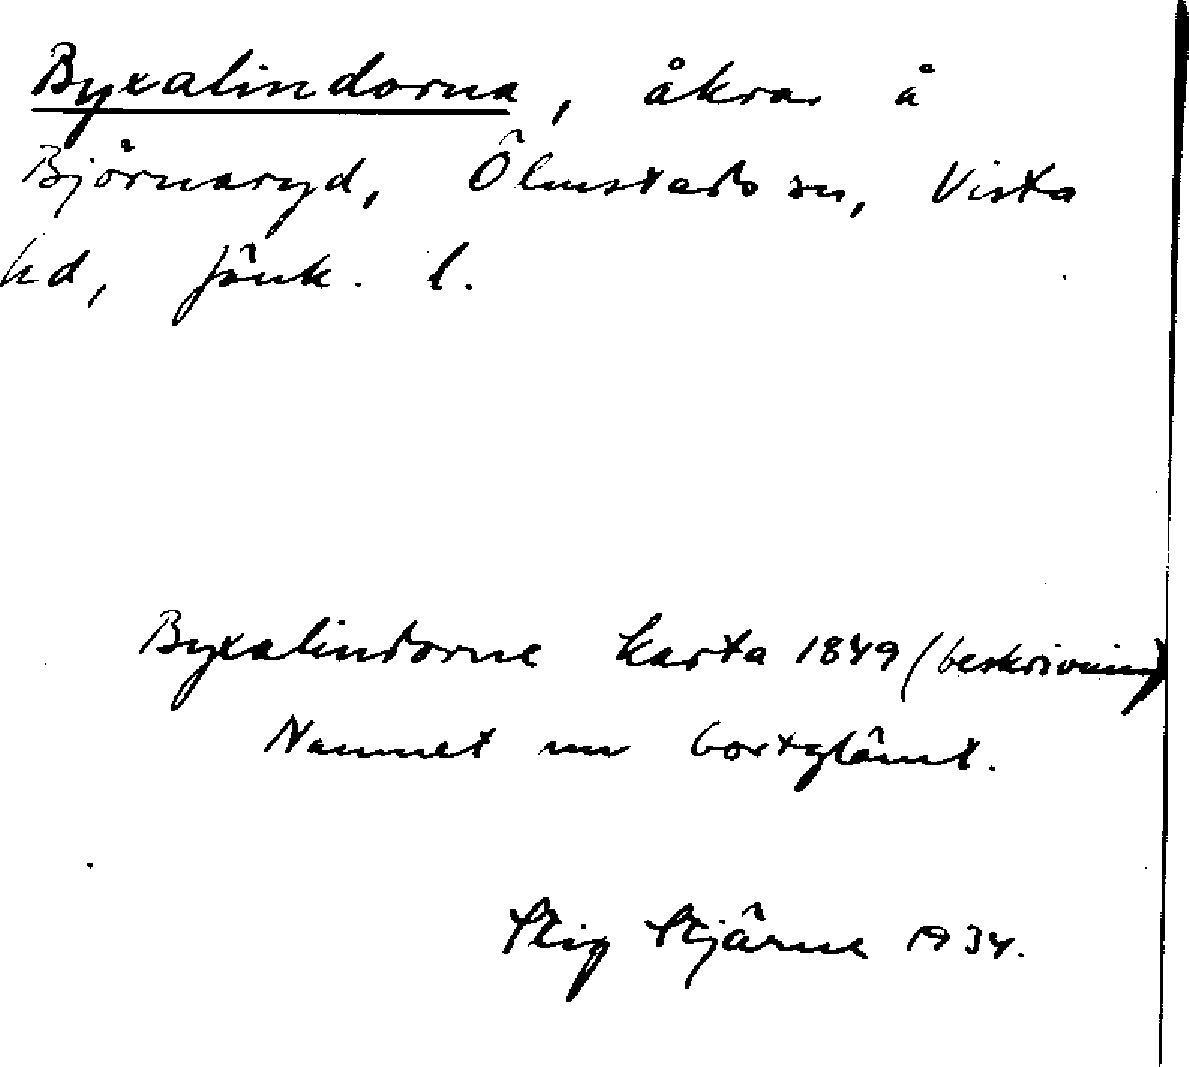 Byxalindorna, åkrar å
Björnaryd, Ölmstads sn, Vista
hd, Jönk. l.
Byxalindorne karta 1849 (beskrivning)
Namnet nu bortglömt.
Stig Stjärne 1934.